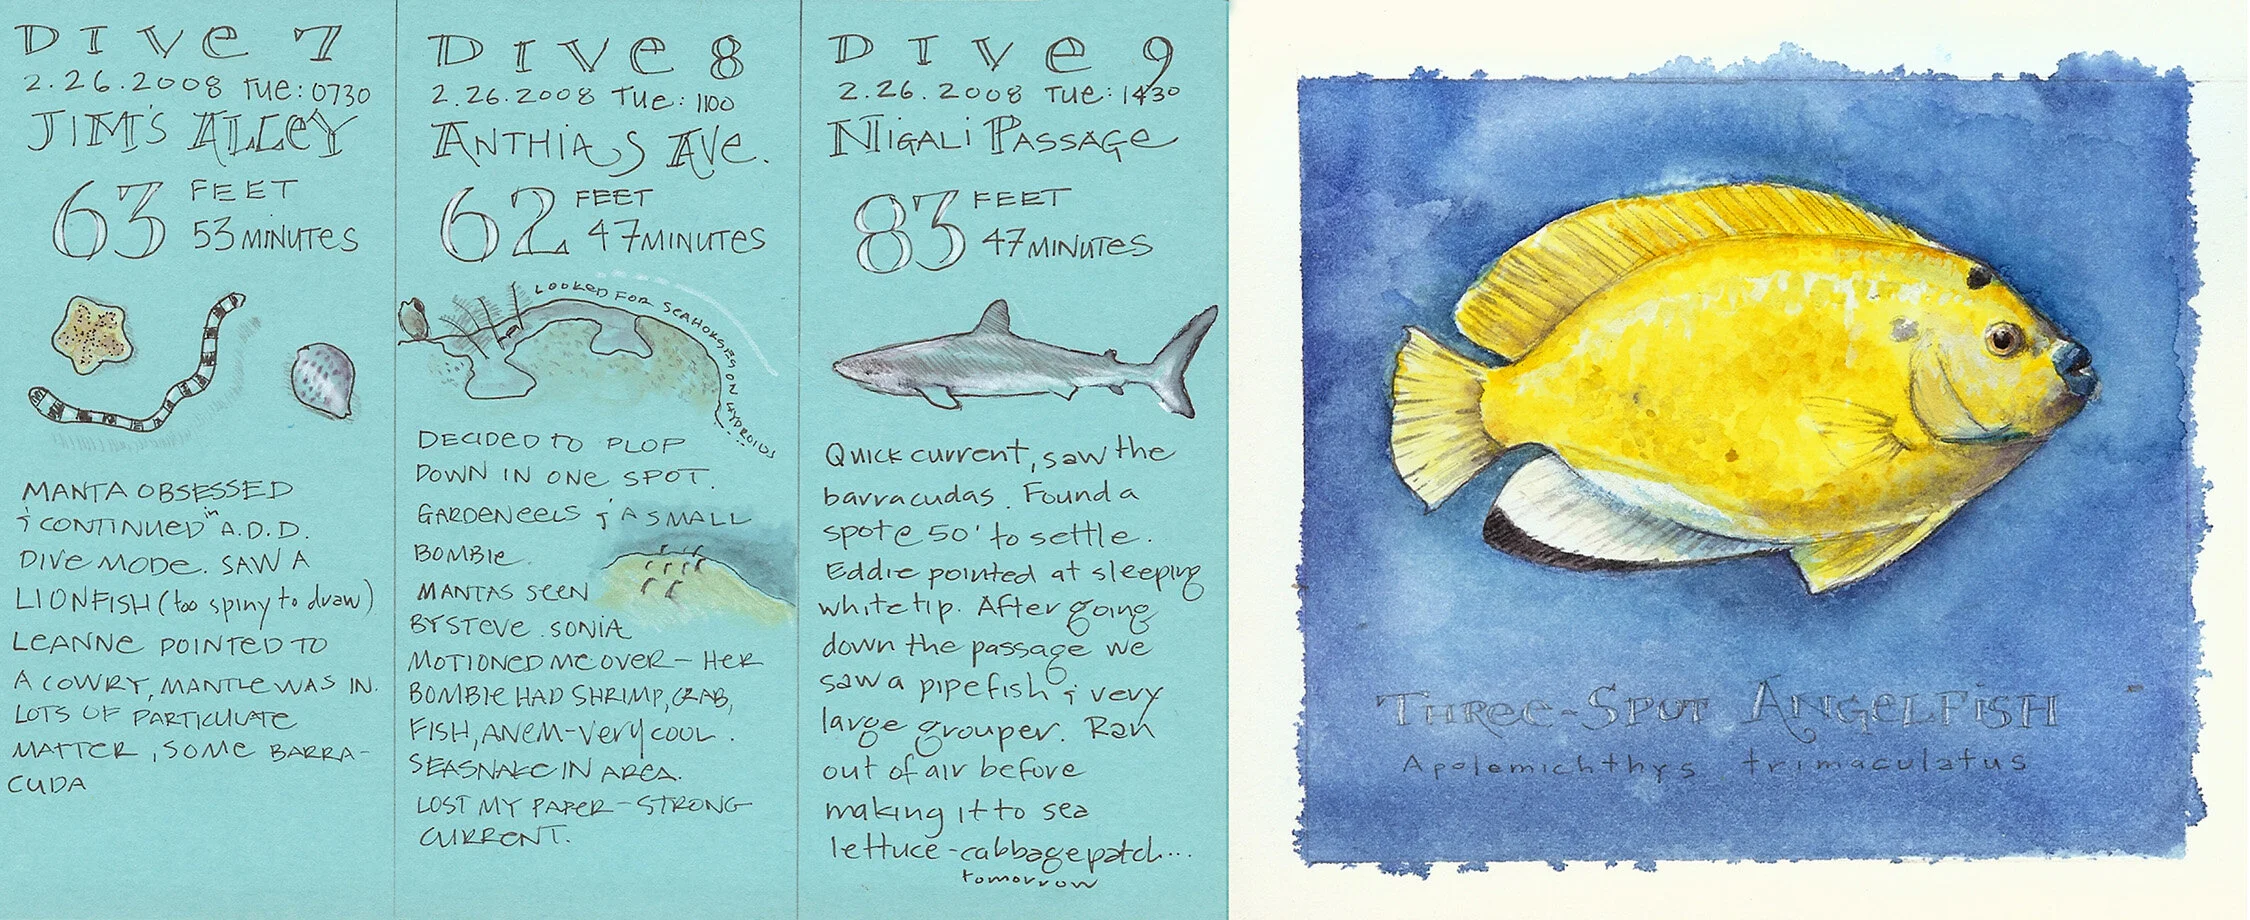 DIVE 7
2.26.2008 TUE: 0730
JIM'S ALLEY
63 FEET
53 MINUTES
MANTA OBSESSED
& CONTINUED in A.D.D.
DIVE MODE. SAW A
LIONFISH (too spiny to draw)
LEANNE POINTED TO
A COWRY, MANTLE WAS IN.
LOTS OF PARTICULATE
MATTER, SOME BARRA-
CUDA
DIVE 8
2.26.2008 TUE: 1100
ANTHIAS AVE.
62 FEET
47 MINUTES
LOOKED FOR SEAHORSES ON HYDROIDS
DECIDED TO PLOP
DOWN IN ONE SPOT.
GARDENEELS & A SMALL
BOMBIE.
MANTAS SEEN
BY STEVE. SONIA
MOTIONED ME OVER – HER
BOMBIE HAD SHRIMP, CRAB,
FISH, ANEM - very cool.
SEASNAKE IN AREA.
LOST MY PAPER – STRONG
CURRENT.
DIVE 9
2.26.2008 TUE: 1430
NIGALI PASSAGE
83 FEET
47 MINUTES
Quick current, saw the
barracudas. Found a
spot @ 50' to settle.
Eddie pointed at sleeping
white tip. After going
down the passage we
saw a pipefish & very
large grouper. Ran
out of air before
making it to sea
lettuce - cabbage patch...
tomorrow
THREE-SPOT ANGELFISH
Apolemichthys trimaculatus